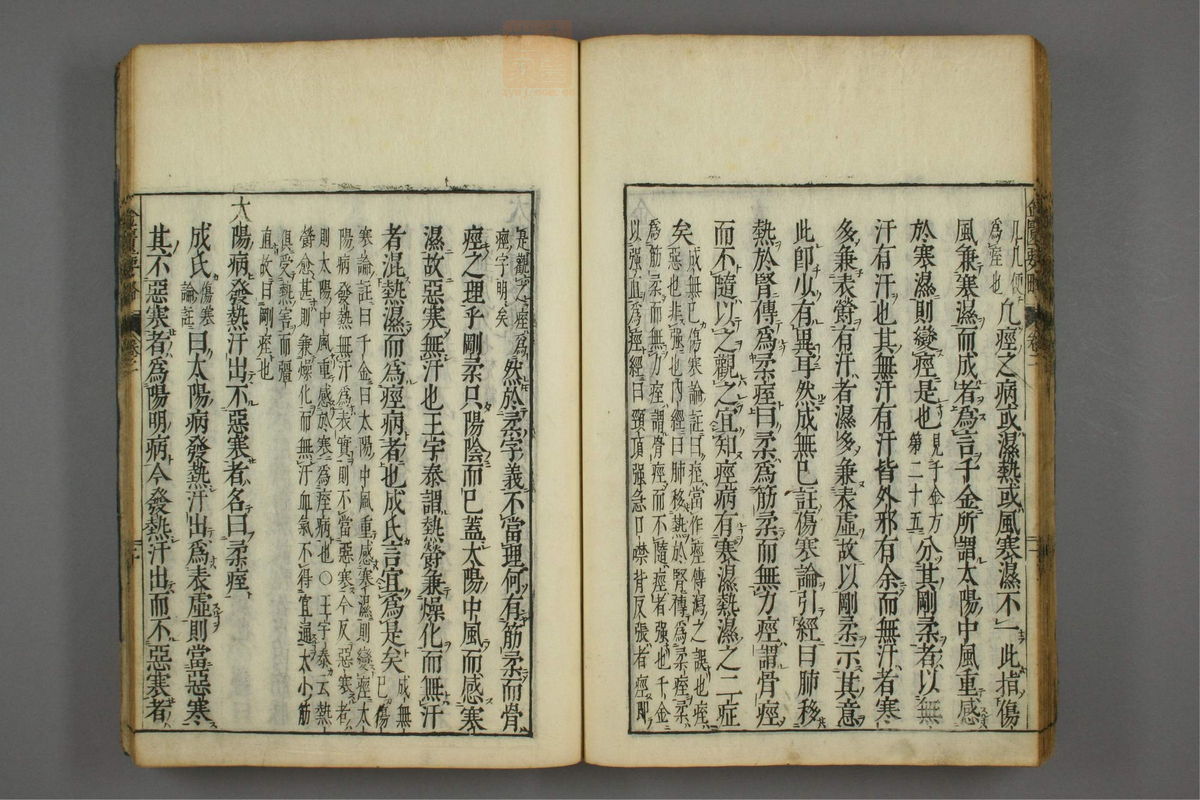 几几便
為痙也
凡痙之病或濕熱或風寒濕不一此指傷
風兼寒濕而成者為言千金所謂太陽中風重感
於寒濕則變痙是也
見千金方
第二十五
分其剛柔者以無
汗有汗也其無汗有汗皆外邪有余而無汗者寒
多兼表欝有汗者濕多兼表虛故以剛柔示其意
此卽少有異耳然成無已註傷寒論引經曰肺移
熱於腎傳為柔痙曰柔為筋柔而無力痙謂骨痙
而不隨以之觀之宜知痙病有寒濕熱濕之二症
矣
成無已傷寒論註曰痓當作痙傳寫之誤也痓
惡也非強也內經曰肺移熱於腎傳為柔痓柔
為筋柔而無力痙謂骨痙而不隨痙者強也千金
以強直為痙經曰頸項強急口噤背反張者痙卽
是觀之痓為
痙字明矣
然於柔字義不當理何有筋柔而骨
痙之理乎剛柔只陽陰而已蓋太陽中風而感寒
濕故惡寒無汗也王宇泰謂熱欝兼燥化而無汗
者混熱濕而為痙病者也成氏言宜為是矣
成無
已傷
寒論註曰千金曰太陽中風重感寒濕則變痙太
陽病發熱無汗為表實則不當惡寒今反惡寒者
則太陽中風重感於寒為痙病也○王宇泰云熱
欝愈甚則兼燥化而無汗血氣不得宣通大小筋
俱受熱害而彊
直故曰剛痙也
太陽病發熱汗出不惡寒者名曰柔痙
成氏
傷寒
論註
曰太陽病發熱汗出為表虛則當惡寒
其不惡寒者為陽明病今發熱汗出而不惡寒者